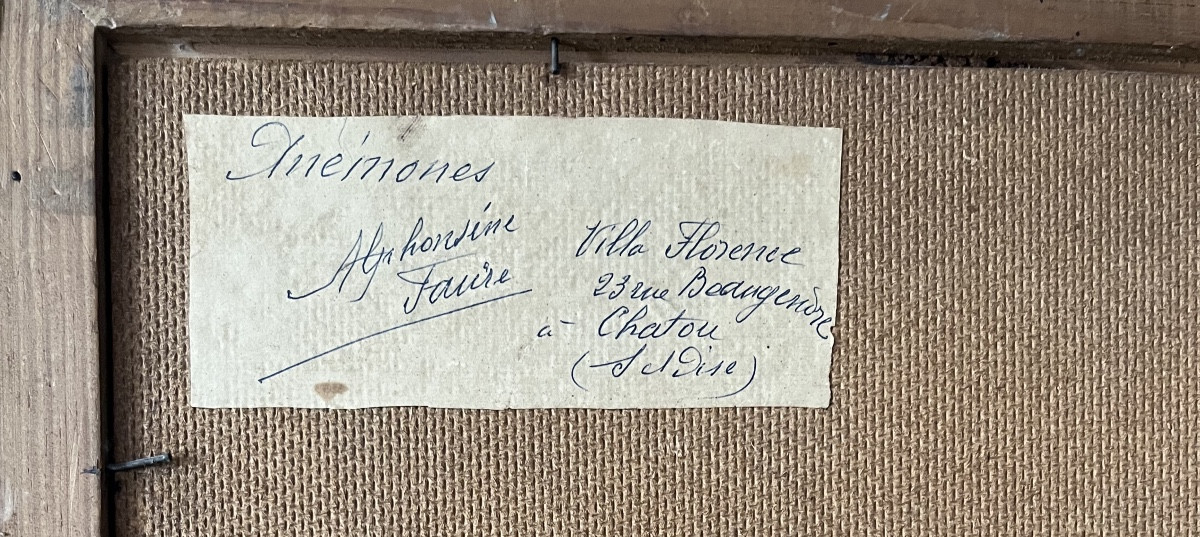 Anémones
Alphonsine
Faure
Villa Florence
23 rue Beaugendre
à Chatou
(S et Oise)